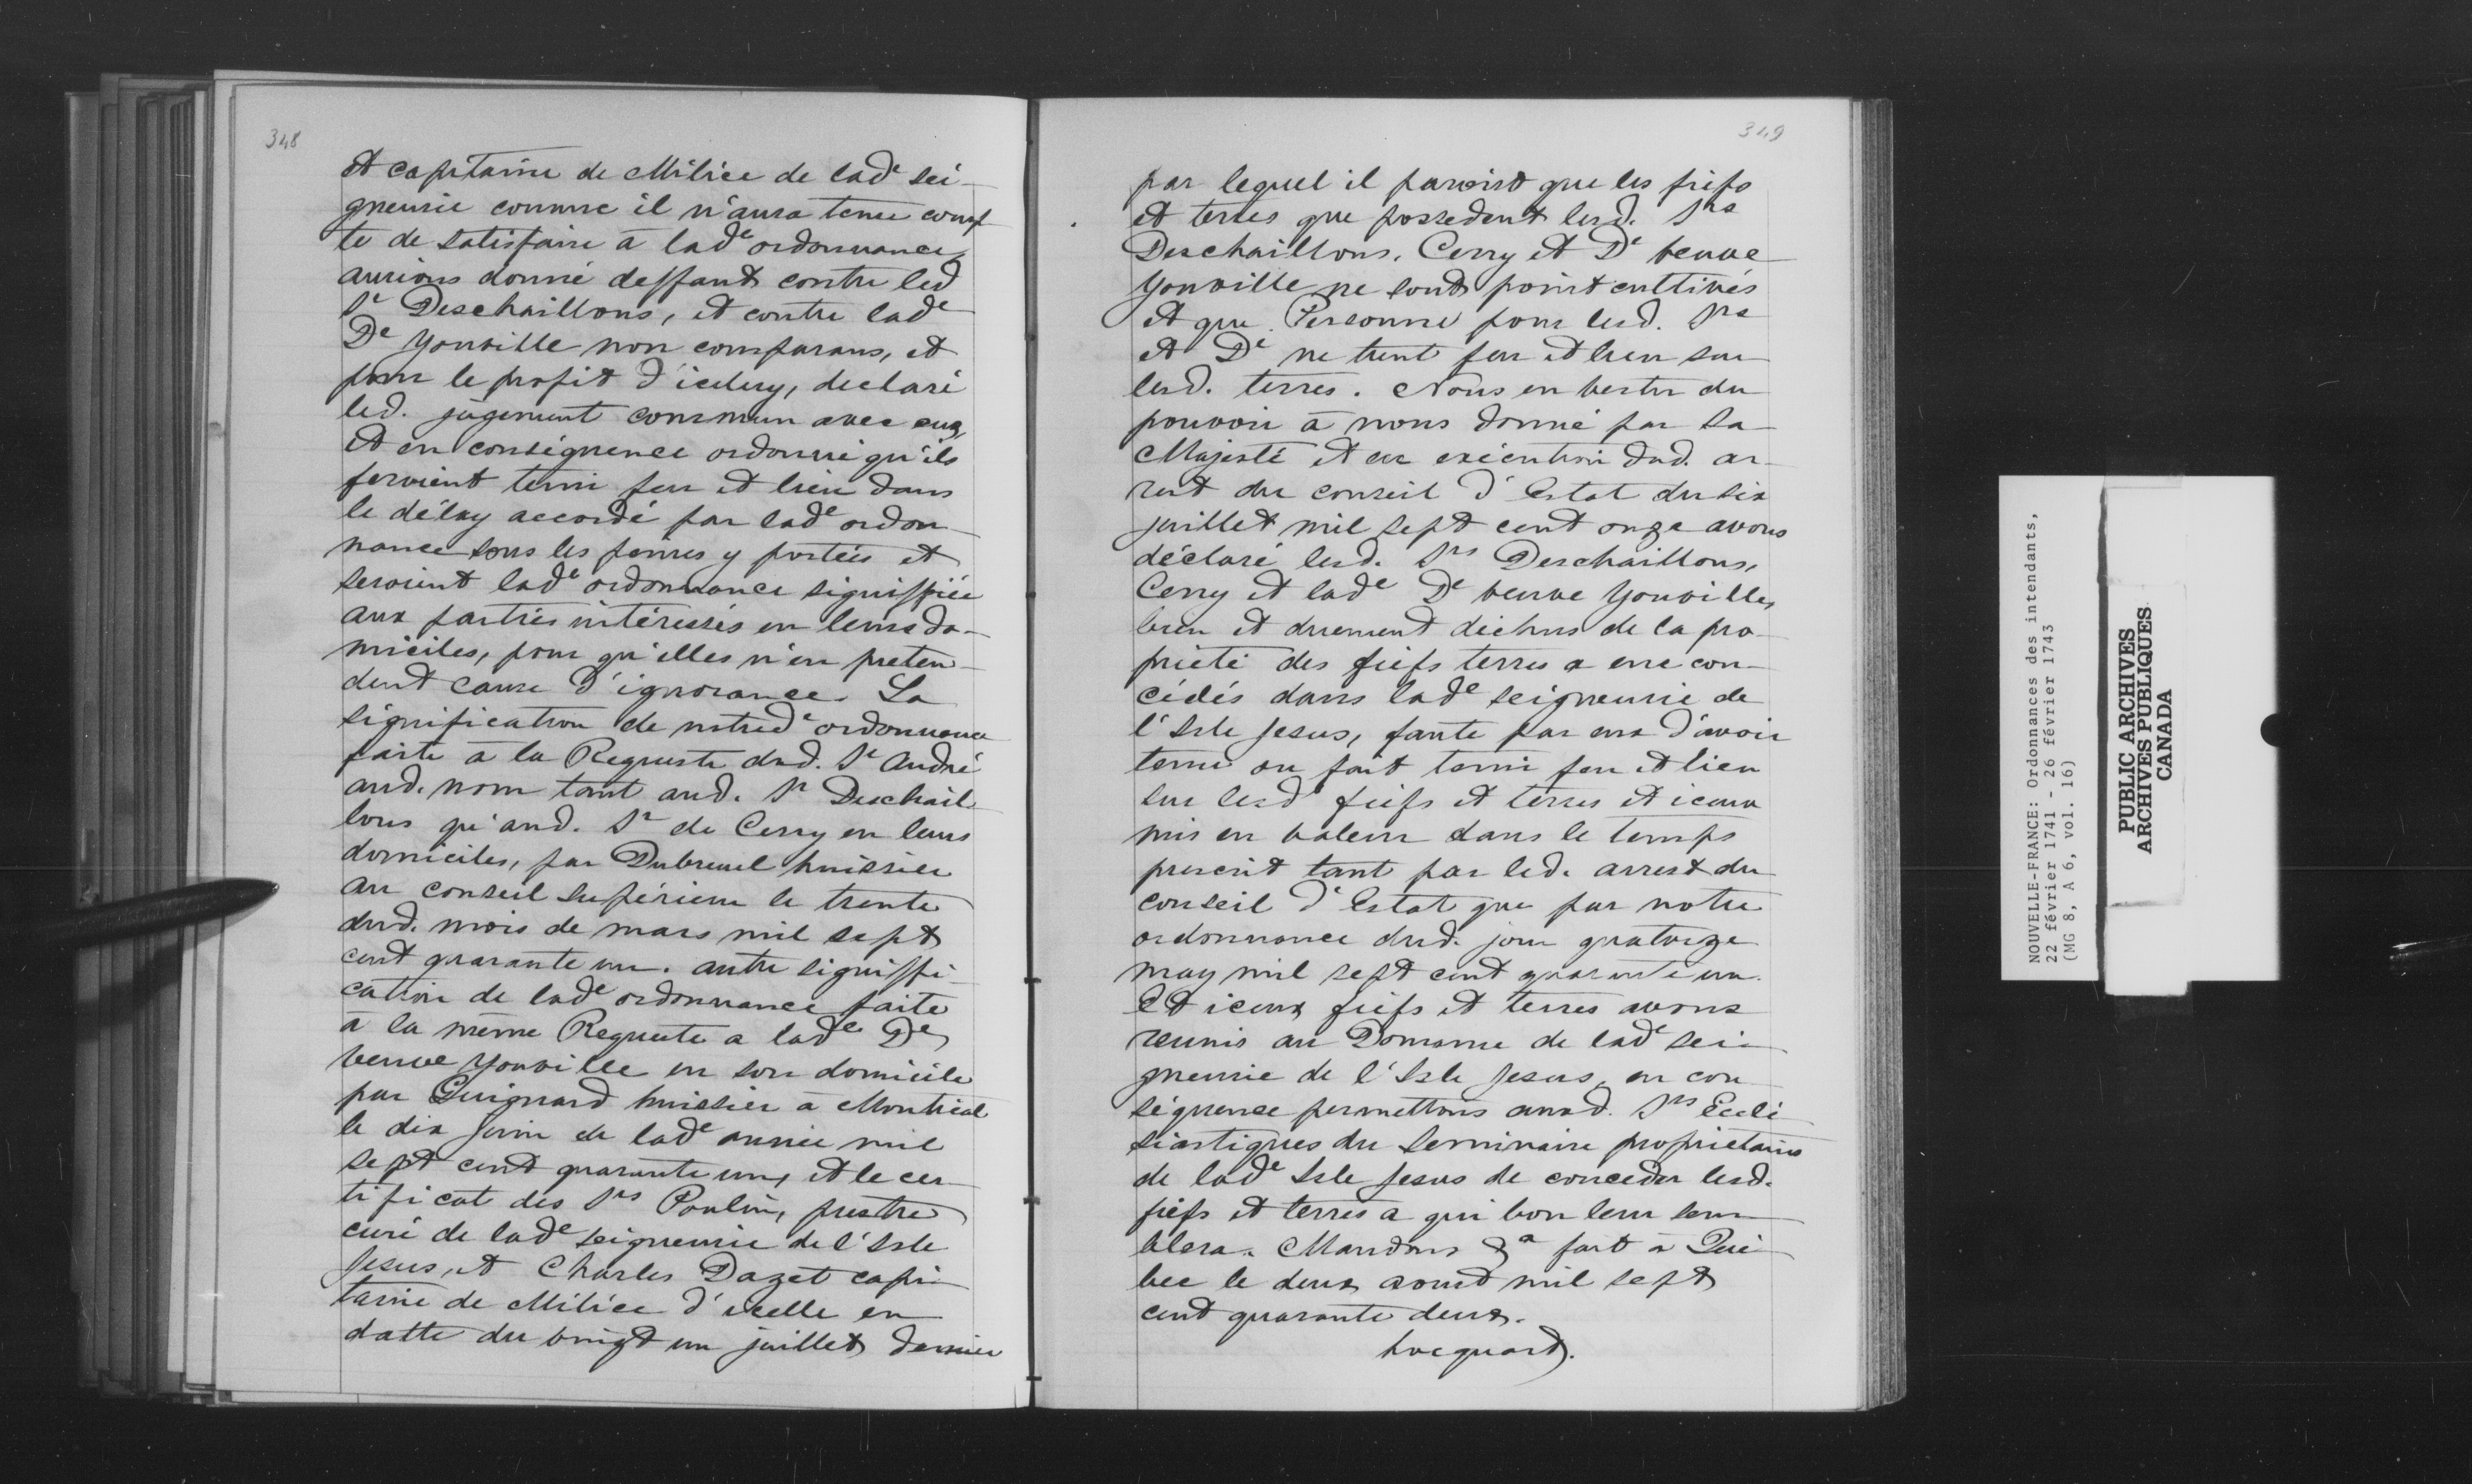 348
et capitaine de Milice de lad.e sei-
gneurie comme il n'aura tenu comp-
te de satisfaire à lad.e ordonnance,
aurions donné deffaut contre led
Sr Deschaillons, et contre lad.e
De Youville non comparans, et
pour le profit d'iceluy, declaré
led. jugement commun avec eux,
et en conséquence ordonné qu'ils
feroient tenir feu et lieu dans
le délay accordé par lad.e ordon-
nance sous les peines y portées et
seroient lad.e ordonnance signiffiée
aux parties intéressés en leurs do-
miciles, pour qu'elles n'en preten-
dent cause d'ignorance. La
signification de notred.e ordonnance
faite à la Requeste dud. Sr André
aud. nom tant aud. Sr Deschail-
lons qu'aud. Sr de Cerry en leurs
domiciles, par Dubreuil huissier
au conseil Supérieur le trente
dud. mois de mars mil sept
cent quarante un. autre signiffi-
cation de lad.e ordonnance faite
à la même Requeste a lad.e De
veuve Youville en son domicile
par Guignard huissier à Montreal
le dix juin de lad.e année mil
sept cent quarante un, et le cer-
tificat des Srs Poulin, prestre
curé de lad.e seigneurie de l'Isle
Jesus, et Charles Dazet capi-
taine de Milice d'icelle en
datte du vingt un juillet dernier
349
par lequel il paroist que les fiefs
et terres que possedent lesd. Srs
Deschaillons, Cerry et De veuve
Youville ne sont point cultivés
et que Personne pour lesd. Srs
et De ne tient feu et lieu sur
lesd. terres. Nous en vertu du
pouvoir à nous donné par Sa
Majesté et en exécution dud. ar-
rest du conseil d'Estat du six
juillet mil sept cent onze avons
déclaré lesd. Srs Deschaillons,
Cerry et lad.e De veuve Youville,
bien et duement dechus de la pro-
prieté des fiefs terres a eux con-
cédés dans lad.e seigneurie de
l'Isle Jesus, faute par eux d'avoir
tenu ou fait tenir feu et lieu
sur lesd. fiefs et terres et iceux
mis en valeur dans le temps
prescrit tant par led. arrest du
conseil d'Estat que par notre
ordonnance dud. jour quatorze
may mil sept cent quarante un.
Et iceux fiefs et terres avons
reunis au Domaine de lad.e sei-
gneurie de l'Isle Jesus, en con-
séquence permettons auxd. Srs Ecclé-
siastiques du Seminaire proprietaires
de lad.e Isle Jesus de conceder lesd.
fiefs et terres a qui bon leur sem-
blera. Mandons &a fait à Qué-
bec le deux aoust mil sept
cent quarante deux.
hocquart.
NOUVELLE-FRANCE: Ordonnances des intendants,
22 février 1741 - 26 février 1743
(MG 8, A 6, vol. 16)
PUBLIC ARCHIVES
ARCHIVES PUBLIQUES
CANADA